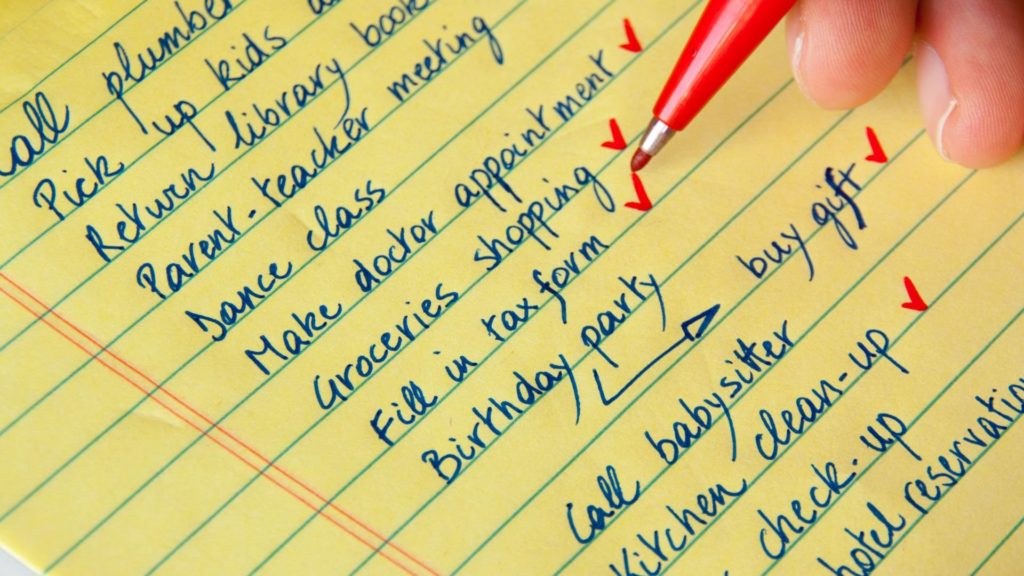 Call plumber
Pick up kids
Return library book
Parent-teacher meeting
Dance class
Make doctor appointment
Groceries shopping
Fill in tax form
Birthday party
buy gift
Call babysitter
Kitchen clean-up
check-up
hotel reservation